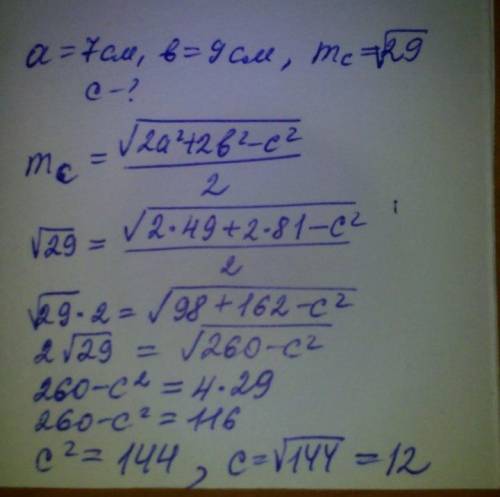 a = 7см, в = 9см, mc = √29
c - ?
mc = √(2a²+2в²-c²) / 2
√29 = √(2·49+2·81-c²) / 2 ;
√29·2 = √(98+162-c²)
2√29 = √(260-c²)
260-c² = 4·29
260-c² = 116
c² = 144, c = √144 = 12